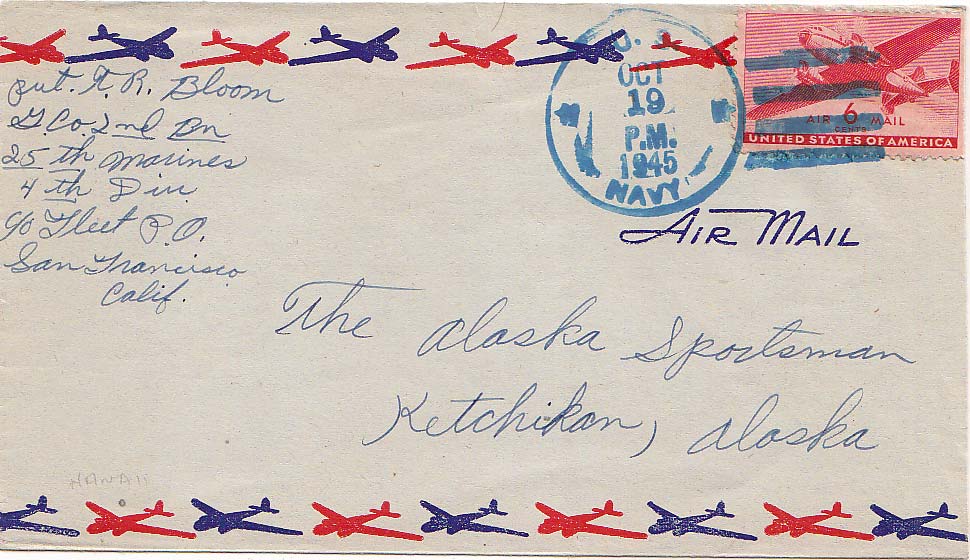 Pvt. F. R. Bloom
G Co. 2nd Bn
25th Marines
4th Div
c/o Fleet P.O.
San Francisco
Calif.
U. S.
OCT
19
P.M.
1945
NAVY
AIR 6 MAIL
CENTS
UNITED STATES OF AMERICA
AIR MAIL
The Alaska Sportsman
Ketchikan, Alaska
HAWAII